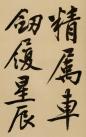 精屬車
劒履星辰